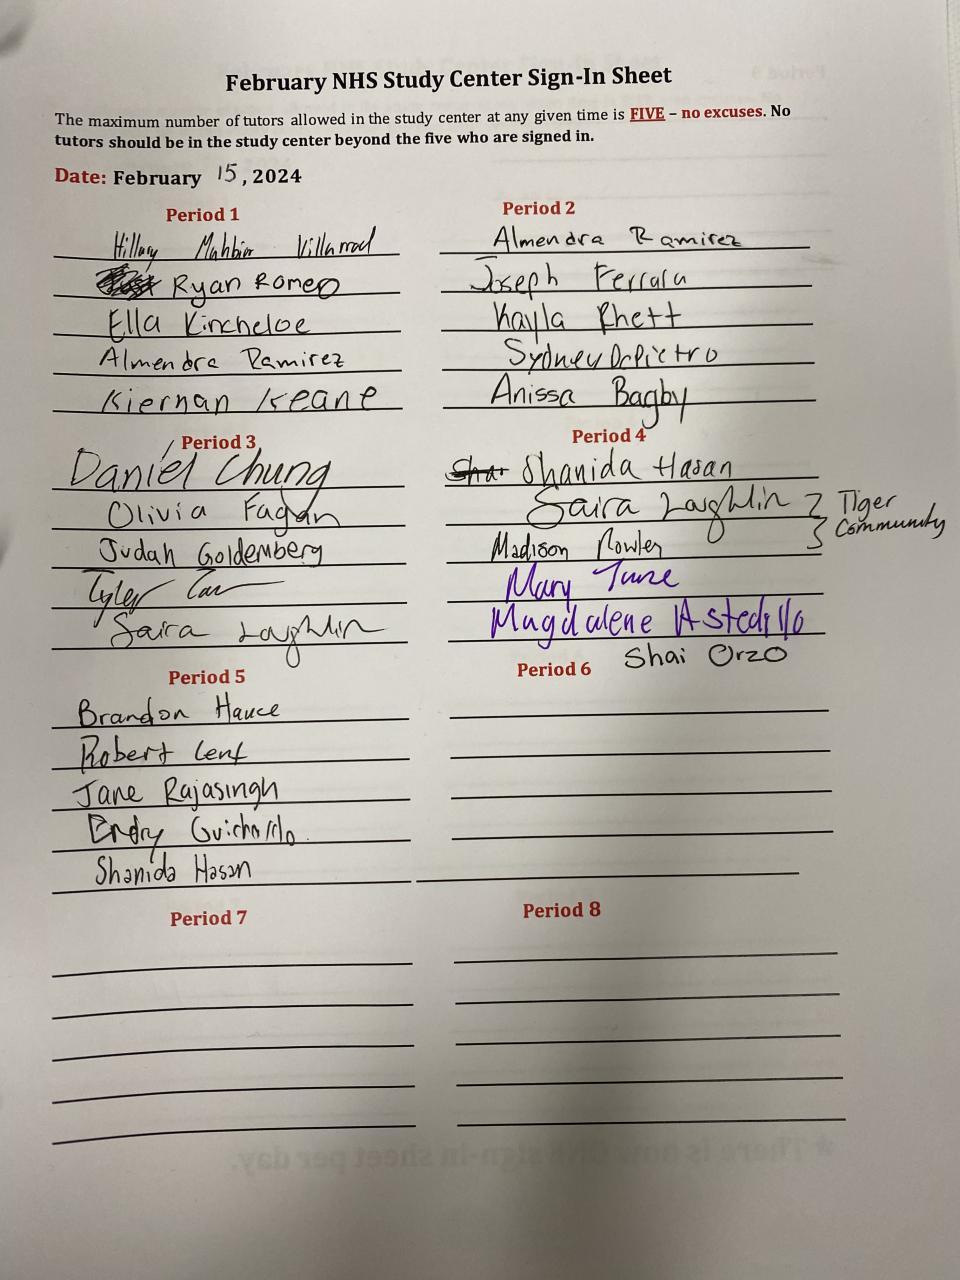 February NHS Study Center Sign-In Sheet
The maximum number of tutors allowed in the study center at any given time is FIVE – no excuses. No
tutors should be in the study center beyond the five who are signed in.
Date: February 15, 2024
Period 1
Hillary Mahbior Villarroel
Ryan Romeo
Ella Kincheloe
Almendra Ramirez
Kiernan Keane
Period 2
Almendra Ramirez
Joseph Ferrara
Kayla Rhett
Sydney DePietro
Anissa Bagby
Period 3
Daniel Chung
Olivia Fagan
Judah Goldemberg
Tyler
Saira Laughlin
Period 4
Shanida Hasan
Saira Laughlin
Madison Rowley
Tiger
Community
Mary Tunze
Magdalene Astedillo
Shai Orzo
Period 5
Brandon Hauce
Robert Cenf
Jane Rajasingh
Endry Guichardo
Shanida Hasan
Period 6
Period 7
Period 8